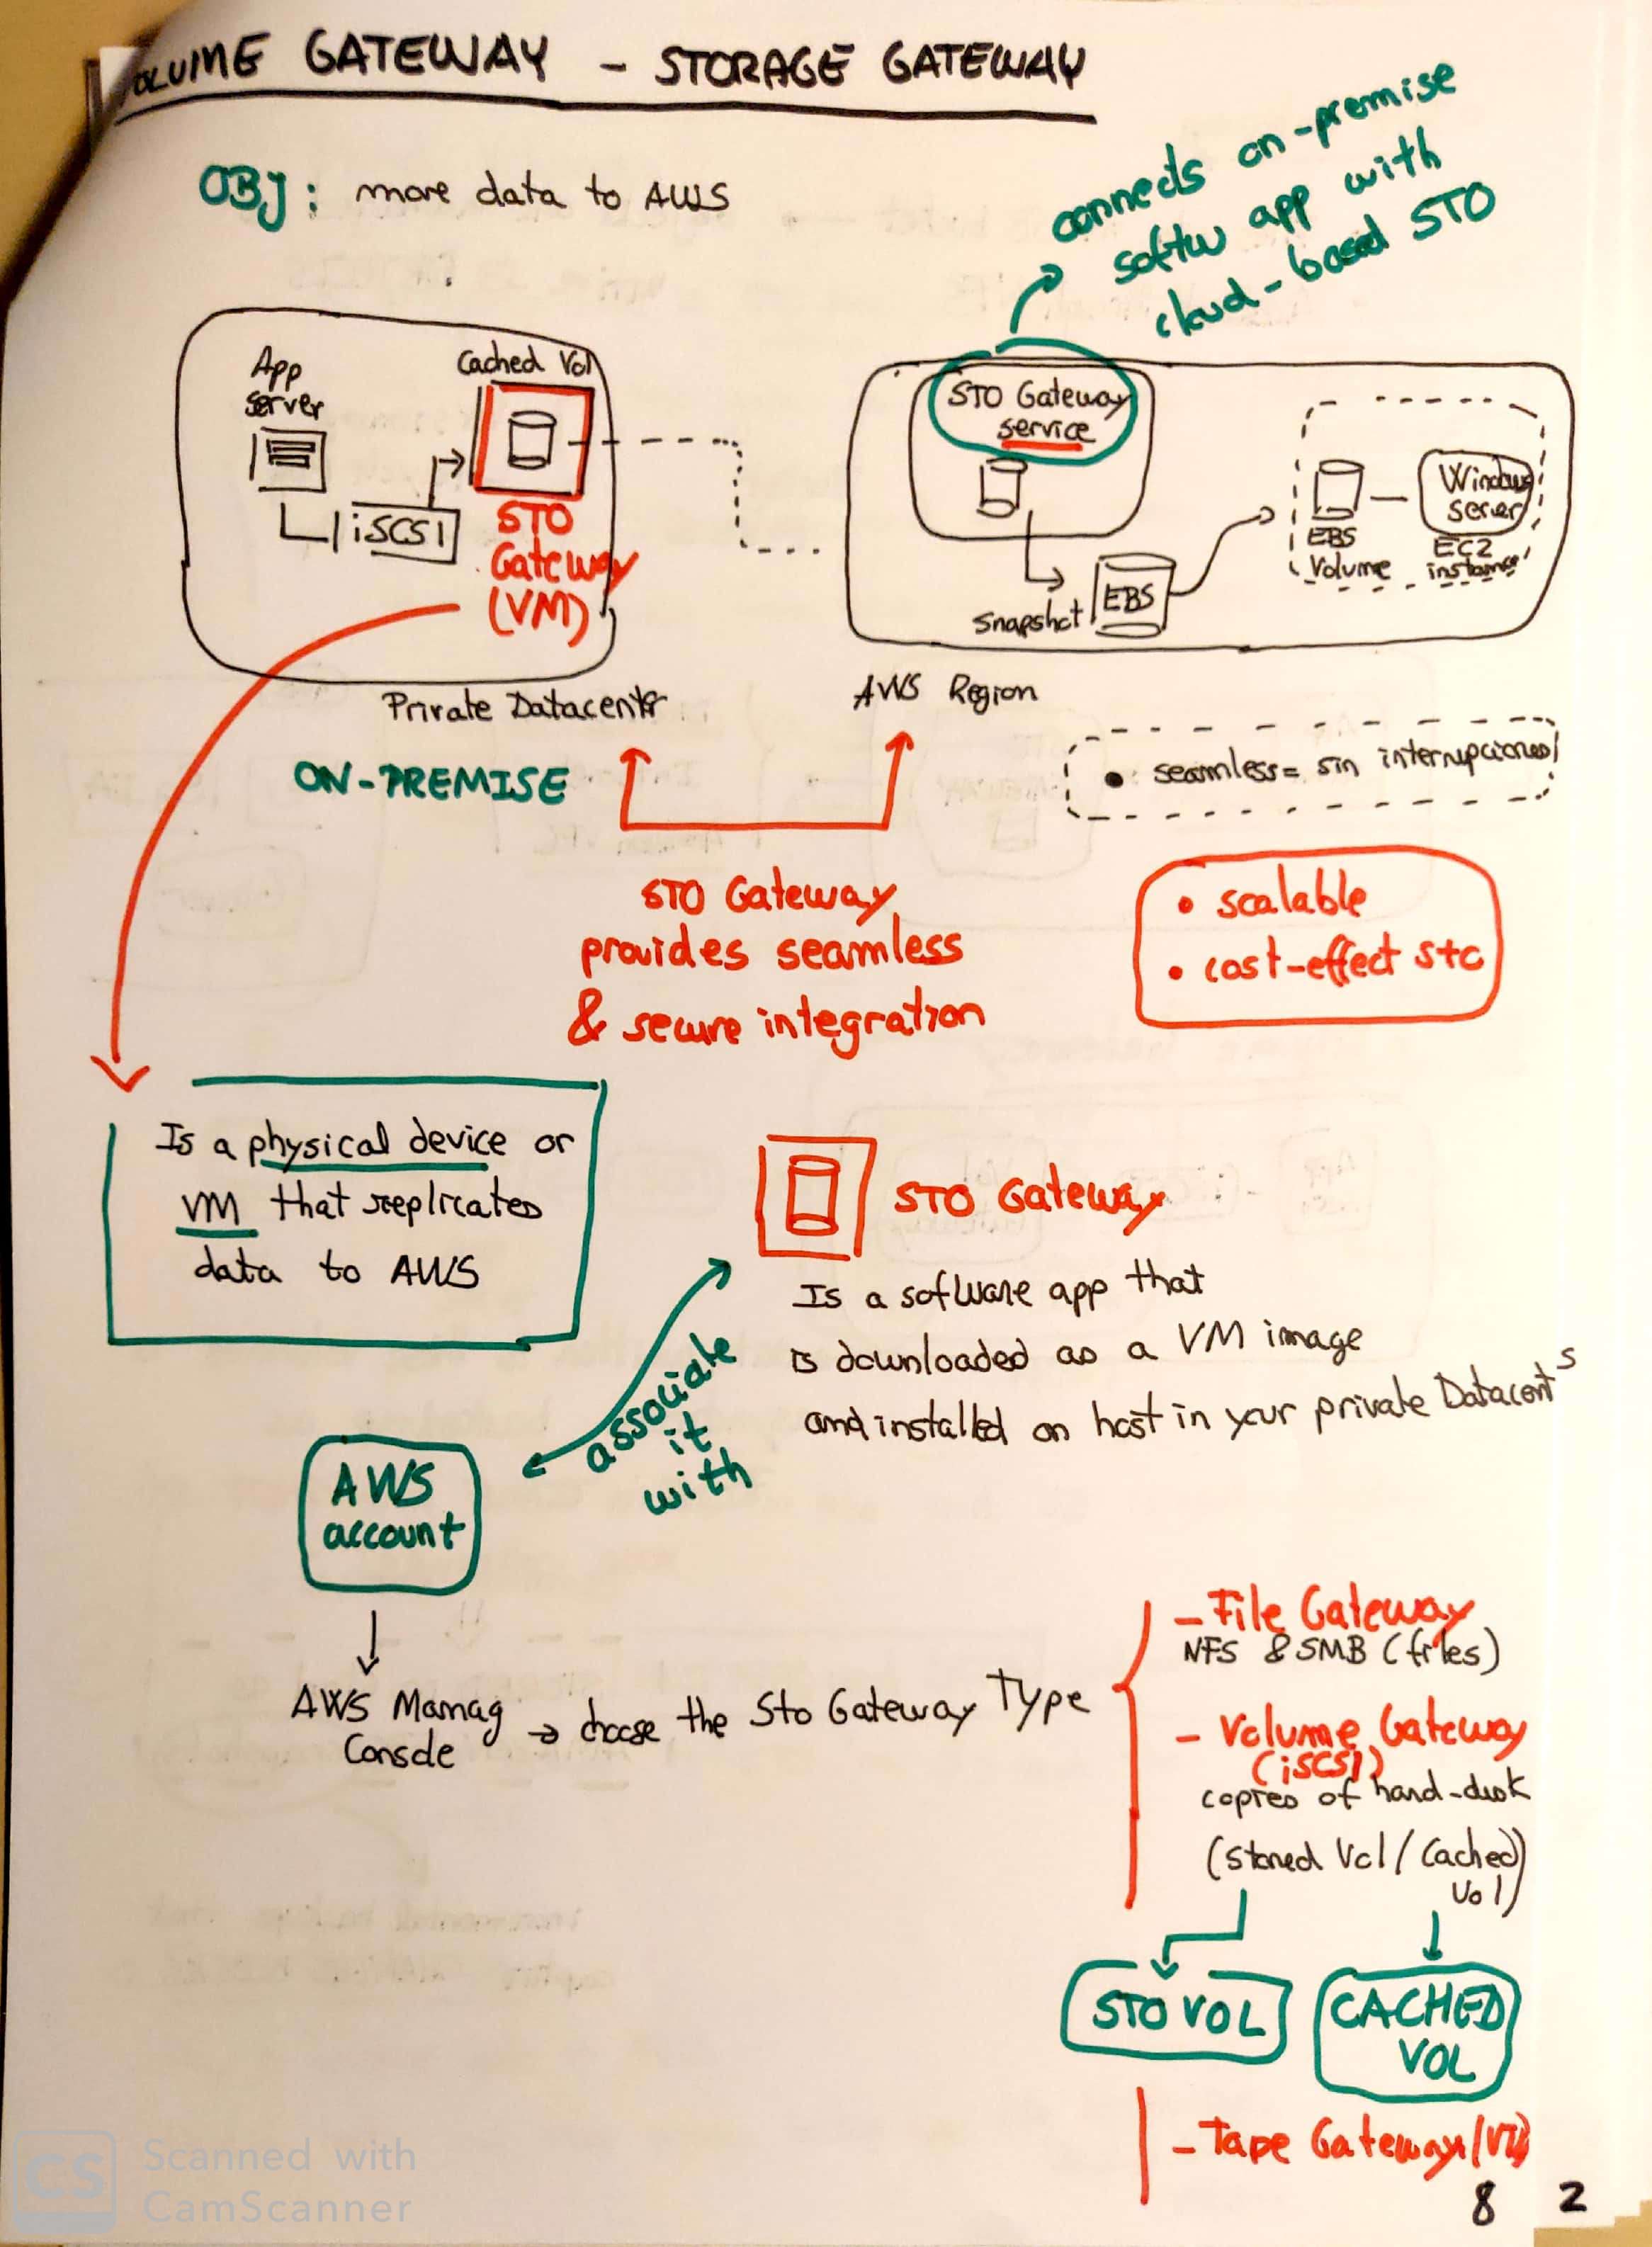 VOLUME GATEWAY - STORAGE GATEWAY
OBJ: more data to AWS
connects on-premise
softw app with
cloud-based STO
App
server
Cached Vol
iSCSI
STO
Gateway
(VM)
Private Datacentr
ON-PREMISE
STO Gateway
service
Snapshot
EBS
EBS
Volume
Windows
server
EC2
instance
AWS Region
• seamless = sin interrupciones
STO Gateway
provides seamless
& secure integration
• scalable
• cost-effect sto
Is a physical device or
VM that replicates
data to AWS
STO Gateway
Is a software app that
is downloaded as a VM image
and installed on host in your private Datacents
associate
it
with
AWS
account
AWS Manag
Console
→ choose the Sto Gateway Type
- File Gateway
NFS & SMB (files)
- Volume Gateway
(iSCSI)
copies of hard-disk
(stored Vol / Cached
Vol)
STO VOL
CACHED
VOL
- Tape Gateway (VTL)
8 2
CS
Scanned with
CamScanner